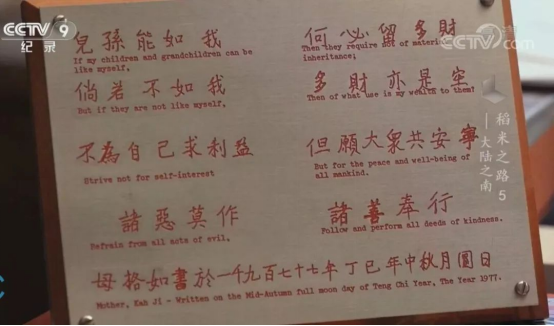 CCTV 9
纪录
CCTV.com
稻米之路 5
——大陆之南
兒孫能如我
If my children and grandchildren can be
like myself,
何必留多財
Then they require not of material
inheritance;
倘若不如我
But if they are not like myself,
多財亦是空
Then of what use is my wealth to them?
不為自己求利益
Strive not for self-interest
但願大眾共安寧
But for the peace and well-being of
all mankind.
諸惡莫作
Refrain from all acts of evil,
諸善奉行
Follow and perform all deeds of kindness.
母格如書於一千九百七十七年丁巳年中秋月圓日
Mother, Kah Ji - Written on the Mid-Autumn full moon day of Teng Chi Year, The Year 1977.